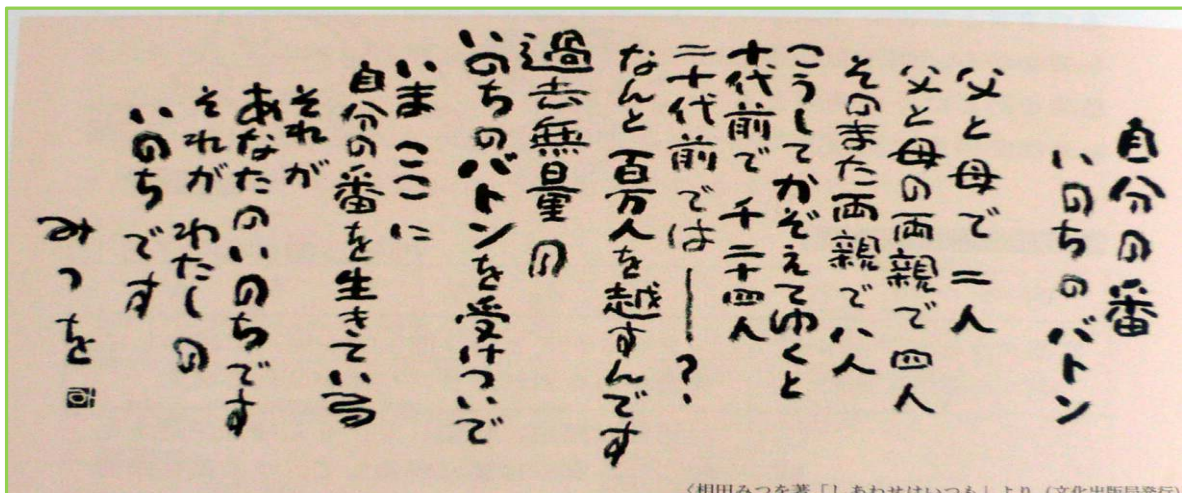 自分の番
いのちのバトン
父と母で二人
父と母の両親で四人
そのまた両親で八人
こうしてかぞえてゆくと
十代前で千二十四人
二十代前では―?
なんと百万人を越すんです
過去無量の
いのちのバトンを受けついで
いまここに
自分の番を生きている
それが
あなたのいのちです
それがわたしの
いのちです
みつを
〈相田みつを著「しあわせはいつも」より (文化出版局発行)